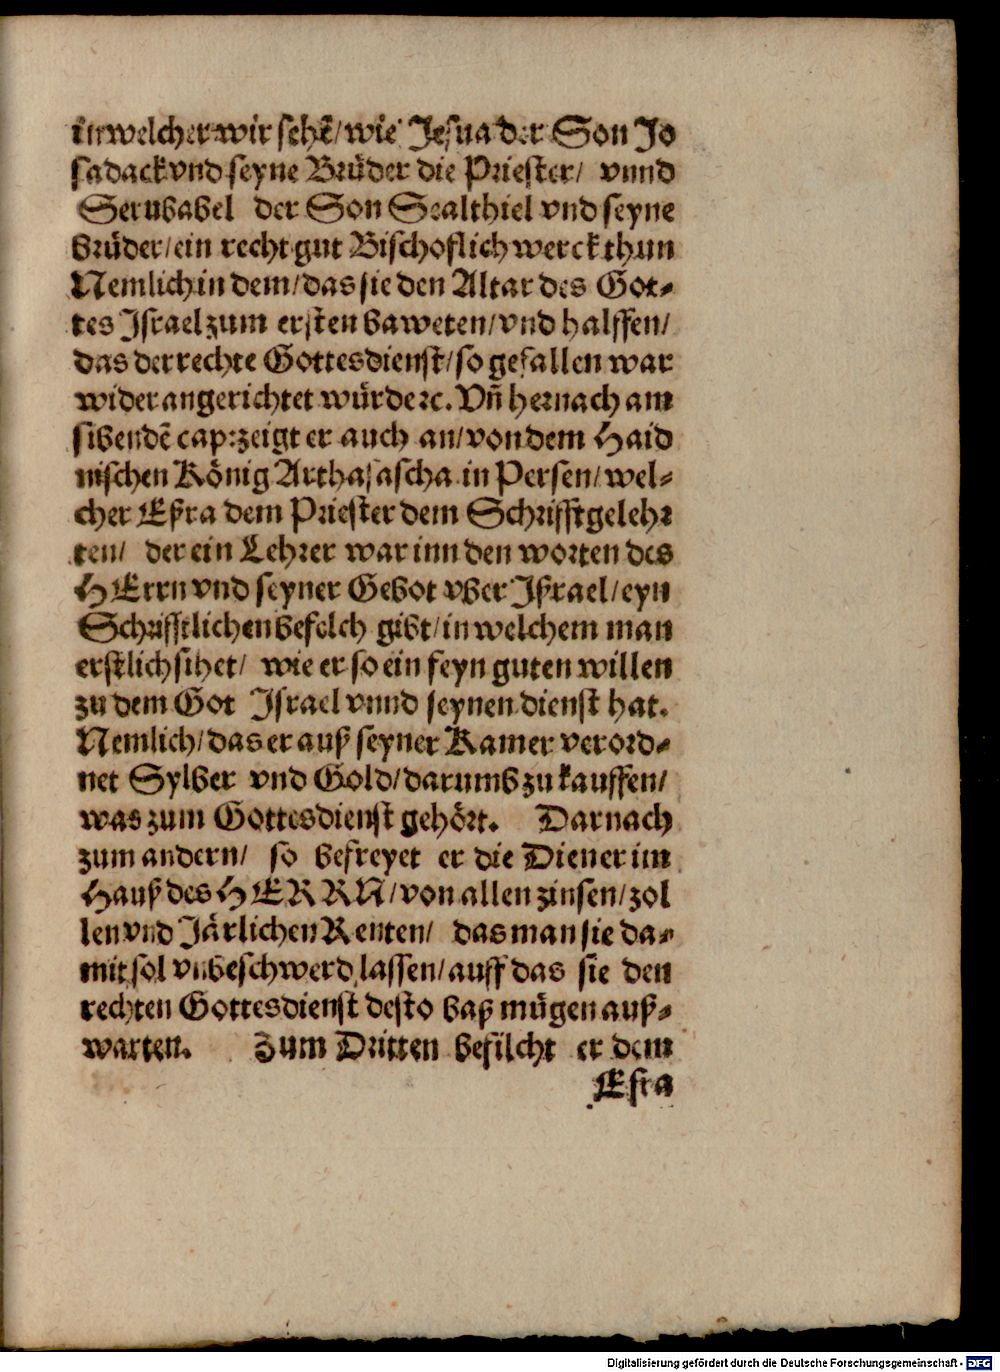 in welcher wir sehē/ wie Jesua der Son Jo
sadack vnd seyne Brüder die Priester/ vnnd
Serubabel der Son Sealthiel vnd seyne
brüder/ ein recht gut Bischoflich werck thun
Nemlich in dem/ das sie den Altar des Got⸗
tes Israel zum ersten baweten/ vnd halffen/
das der rechte Gottesdienst/ so gefallen war
wider angerichtet würde ꝛc. Vñ hernach am
sibendē cap: zeigt er auch an/ von dem Haid
nischen König Arthasascha in Persen/ wel⸗
cher Eßra dem Priester dem Schrifftgelehr
ten/ der ein Lehrer war inn den worten des
HErrn vnd seyner Gebot vber Ißrael/ eyn
Schrifftlichen befelch gibt/ in welchem man
erstlich sihet/ wie er so ein feyn guten willen
zu dem Got Israel vnnd seynen dienst hat.
Nemlich/ das er auß seyner Kamer verord⸗
net Sylber vnd Gold/ darumb zu kauffen/
was zum Gottesdienst gehört. Darnach
zum andern/ so befreyet er die Diener im
Hauß des HERRN/ von allen zinsen/ zol
len vnd Järlichen Renten/ das man sie da⸗
mit sol vnbeschwerd lassen/ auff das sie den
rechten Gottesdienst desto baß mügen auß⸗
warten. Zum Dritten befilcht er dem
Esra
Digitalisierung gefördert durch die Deutsche Forschungsgemeinschaft - DFG